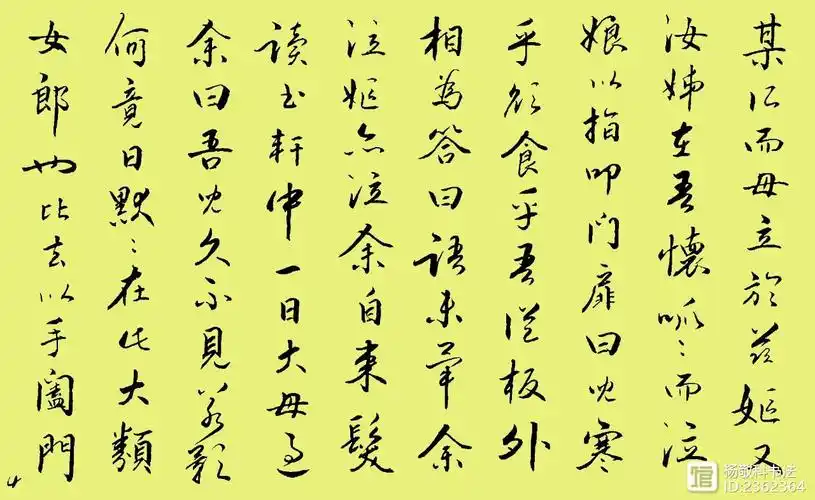 某所而母立於兹嫗又
汝姊在吾懷呱〻而泣
娘以指叩门扉曰兒寒
乎欲食乎吾從板外
相為答曰語未畢余
泣嫗亦泣余自束髮
读书轩中一日大母过
余曰吾兒久不見若影
何竟日默〻在此大類
女郎也比去以手阖門
4
馆
杨敬科书法
ID:2362364